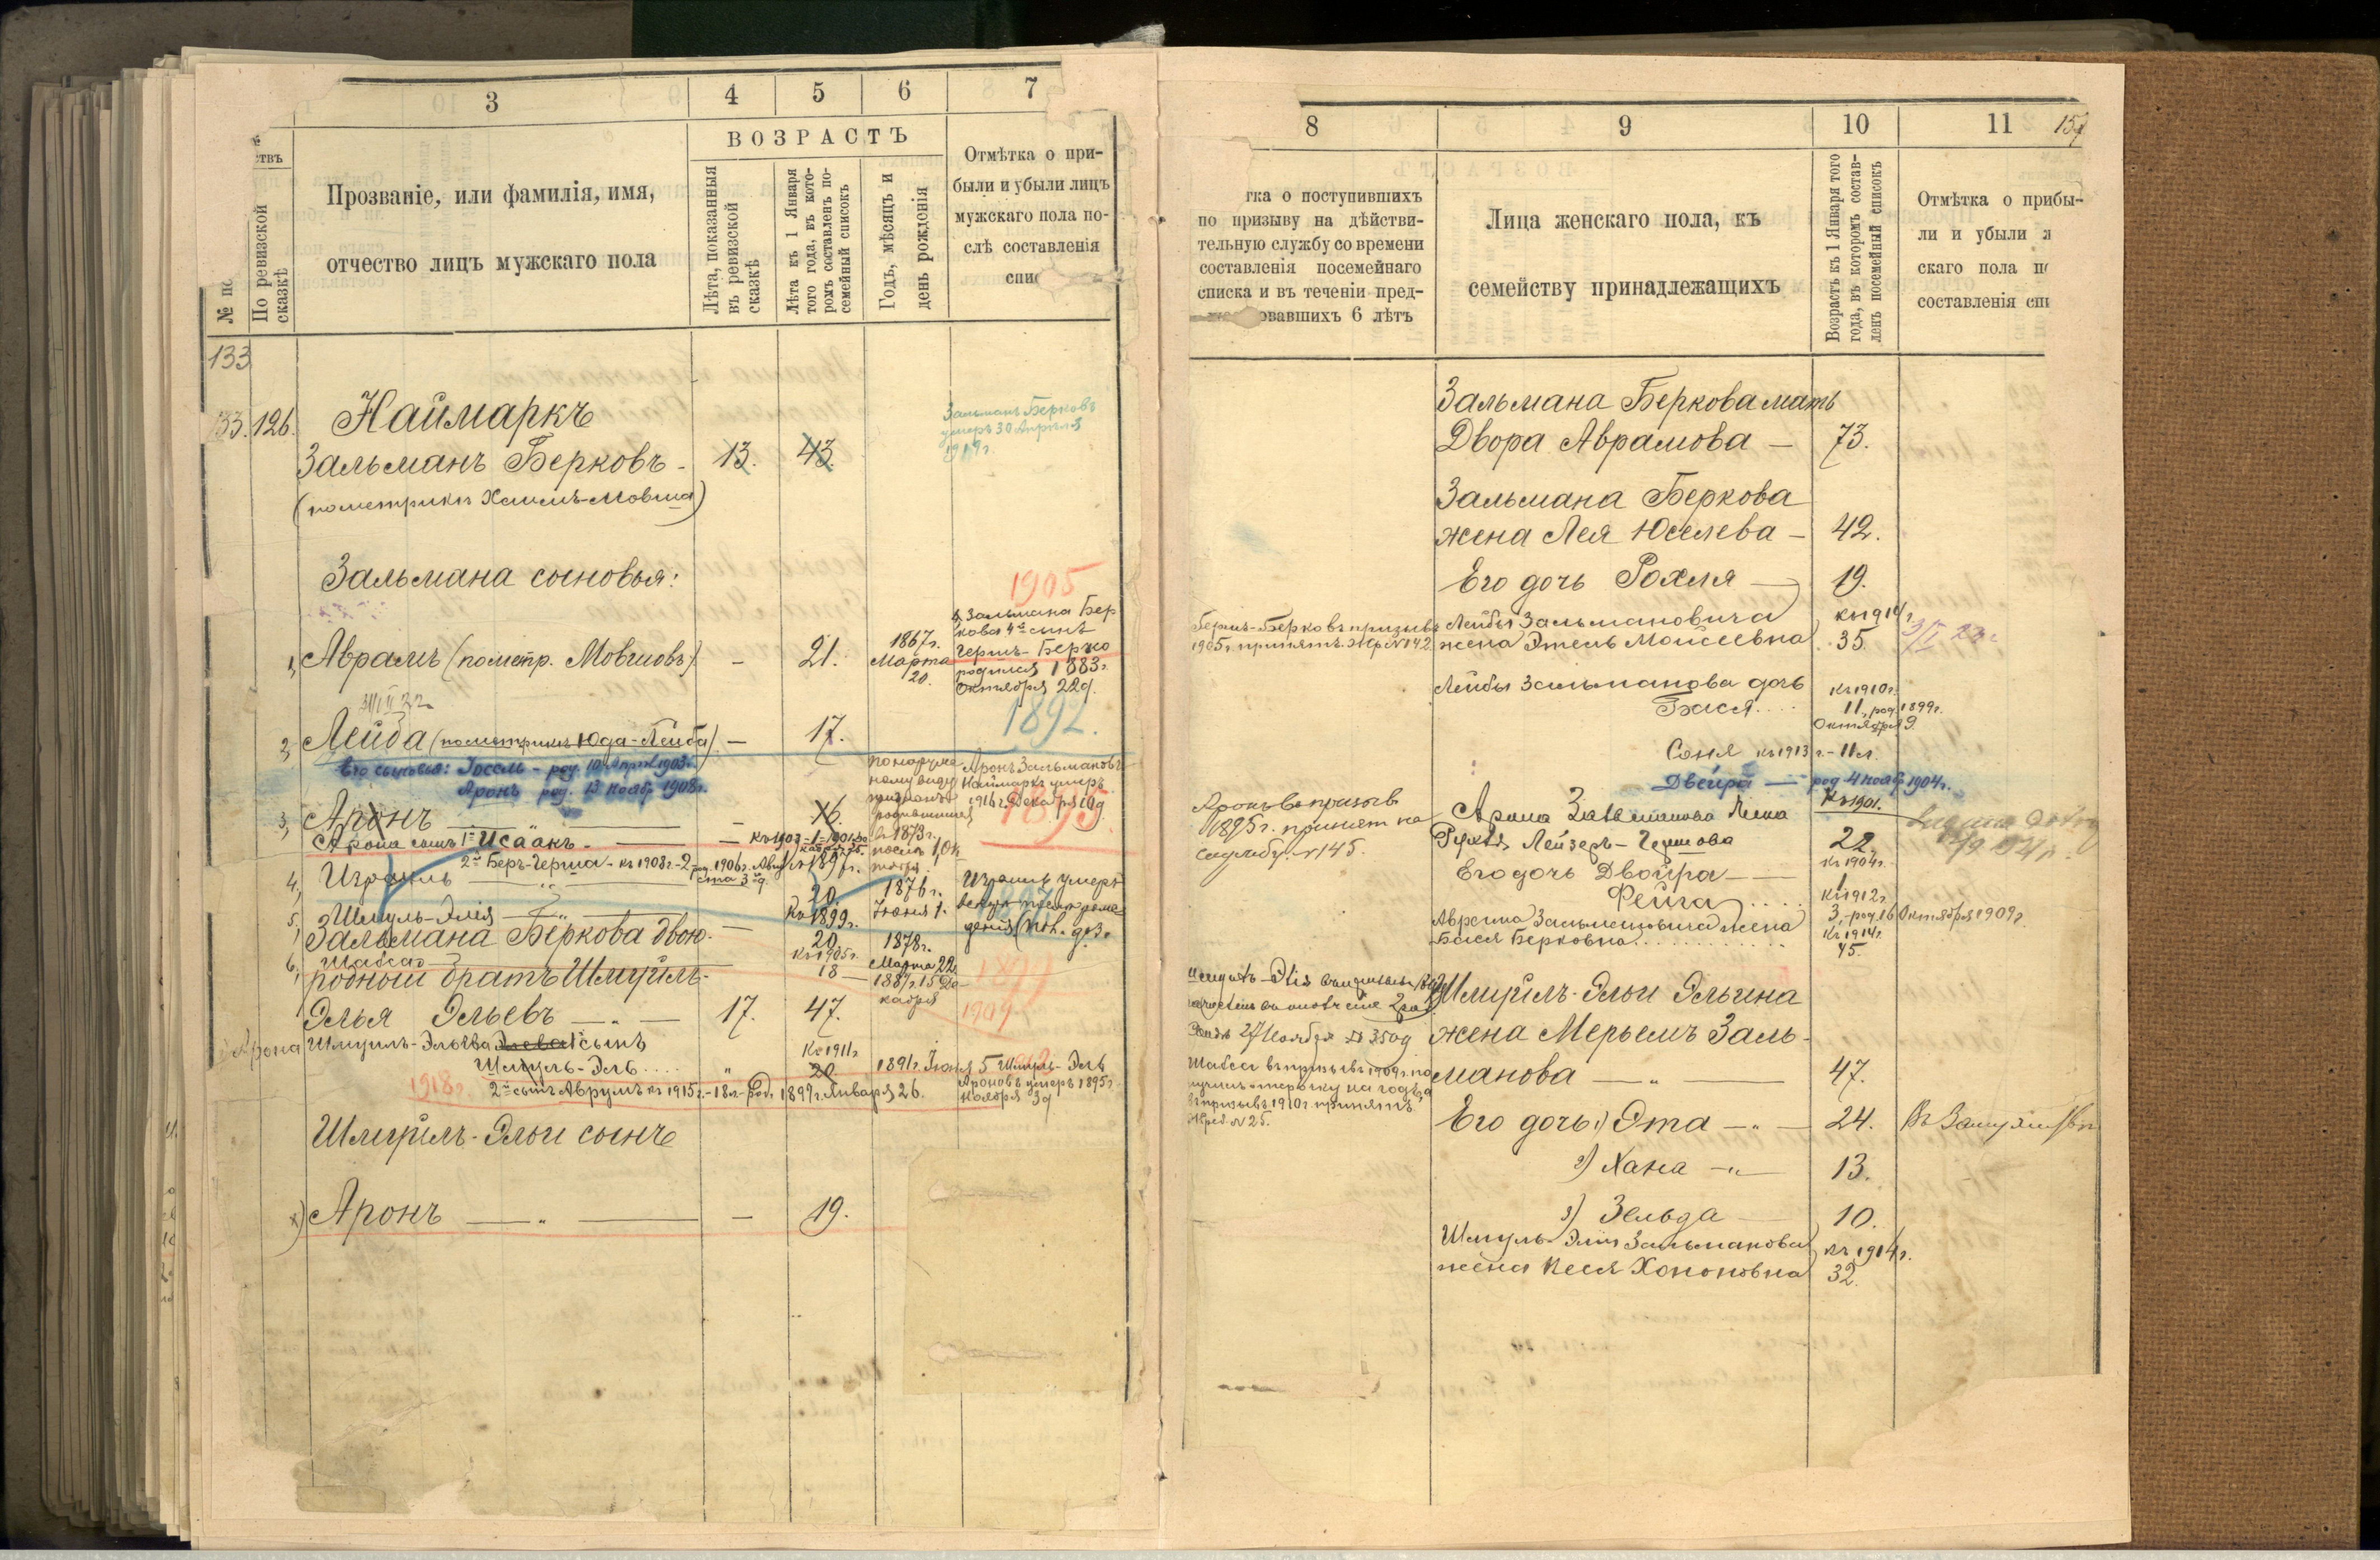 3
4
5
6
7
ВОЗРАСТЪ
По ревизской сказкѣ
Прозваніе, или фамилія, имя,
отчество лицъ мужскаго пола
Лѣта, показанныя
въ ревизской
сказкѣ
Лѣта къ 1 Января
того года, въ кото-
ромъ составленъ по-
семейный списокъ
Годъ, мѣсяцъ и
день рожденія
Отмѣтка о при-
были и убыли лицъ
мужскаго пола по-
слѣ составленія
133
33. 126.
Наймаркъ
Зальманъ Берковъ - 13. 43.
(по метрики Хаимъ-Мовша)
Зальманъ Берковъ
умеръ 30 Апрѣля
1919 г.
Зальмана сыновья:
1905
Зальмана Бер
кова 4й сынъ
Гершъ-Берко
родился 1883 г.
Октября 22 д.
1, Аврамъ (по метр. Мовшовъ) - 21. 1867 г.
Марта
20.
1892.
2, Лейба (по метрики Юда-Лейба) - 17.
Его сыновья: Іосель - род. 10 Апрѣл 1903 г.
Аронъ род. 13 Ноябр 1908 г.
по наружно
ному виду
признанъ
родившимся
в 1873 г.
Аронъ Зальмановъ
Наймаркъ умеръ
1916 г. Декабря 10 д
1895.
3, Аронъ - 16.
Арона сынъ 1й Исаакъ -
2й Беръ-Герша - къ 1908 г. - 2 род. 1906 г. Авгу
ста 3 д.
4, Израиль
20. 1876 г.
Іюня 1.
Израиль умеръ
5, Шмуль-Элія
къ 1899 г.
20 1878 г.
Марта 22
Зальмана Беркова двою-
6, Шабса
къ 1905 г.
18 - 1887 г. 15 Де-
кабря
родный братъ Шмуйлъ-
Элья Эльевъ 17. 47.
1909
Арона Шмуилъ-Эльева сынъ
Шмуль-Эль . . . .
къ 1911 г.
20. 1891 г. Іюня 5 Шмуль-Эль
Ароновъ умеръ 1895 г.
Ноября 3 д
1918 г. 2й сынъ Аврумъ къ 1915 г. - 18 л. - род. 1899 г. Января 26.
Шмуйлъ-Эльи сынъ
Аронъ - 19.
8
9
10
11
по призыву на дѣйстви-
тельную службу со времени
составленія посемейнаго
списка и въ теченіи пред-
овавшихъ 6 лѣтъ
Лица женскаго пола, къ
семейству принадлежащихъ
Возрастъ къ 1 Января того
года, въ которомъ состав-
ленъ посемейный списокъ
Отмѣтка о прибы-
ли и убыли ж
скаго пола по
составленія спи
Зальмана Беркова мать
Двора Аврамова - 73.
Зальмана Беркова
жена Лея Юселева - 42.
Его дочь Рохля - 19.
Гершъ-Берковъ призывъ
1905 г. принятъ. Жер. № 142
Лейбы Зальмановича къ 1914 г.
жена Этель Моисеевна 35.
Лейбы Зальманова дочь къ 1910 г.
Бася . . . . 11, род. 1899 г.
Октября 9
Соня къ 1913 г. - 11 л.
Двейра - род. 4 Нояб. 1904 г.
Аронъ въ призыв
1895 г. принят на
службу. № 145.
Арона Зальманова жена къ 1901.
Лейзеръ-Гершова 22
Его дочь Двойра къ 1904 г.
1
Фейга . . . . къ 1912 г.
3, - род. 16 Октября 1909 г.
Аврама Зальмановича жена къ 1914 г.
Бася Берковна . . . . 45.
Шмуйлъ-Эльи Эльина
жена Мерьемъ Заль-
манова 47.
Шабса въ призывъ 1909 г. по
лучилъ отсрочку на годъ, а
въ призывъ 1910 г. принятъ
Жреб. № 25.
Его дочь: 1) Эта 24. Въ замужеств
2) Хана 13.
3) Зельда 10.
Шмуль-Эліи Зальманова къ 1914 г.
жена Песя Хононовна 32.